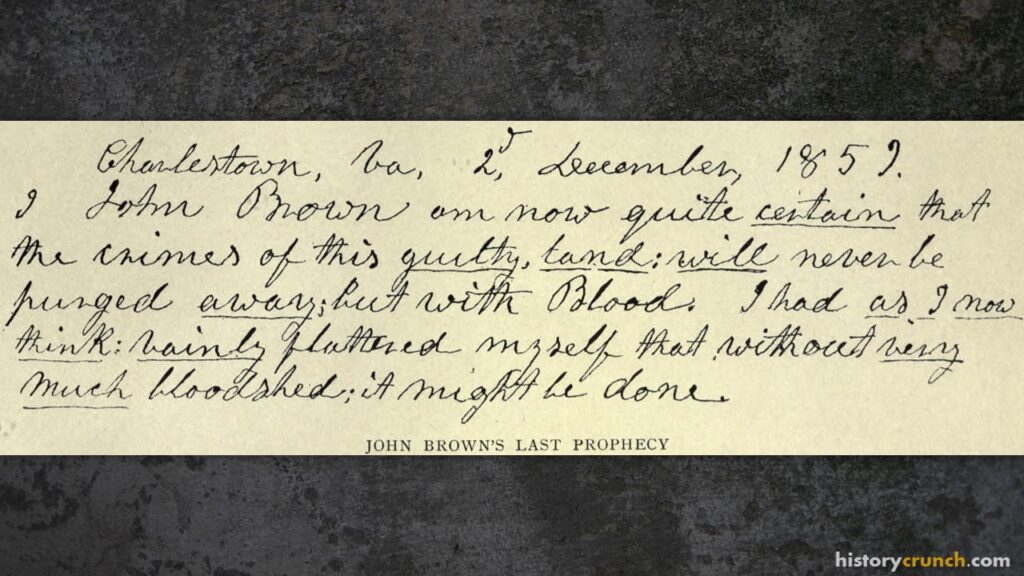 Charlestown, Va, 2d, December, 1859.
I John Brown am now quite certain that
the crimes of this guilty, land: will never be
purged away; but with Blood. I had as I now
think: vainly flattered myself that without very
much bloodshed; it might be done.
JOHN BROWN'S LAST PROPHECY
historycrunch.com